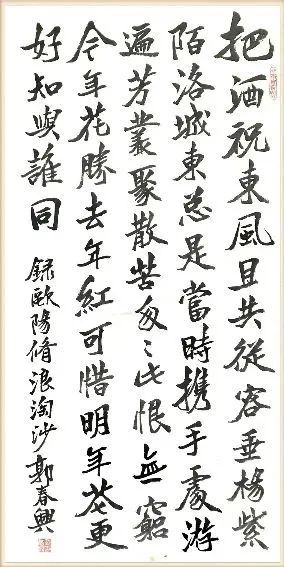 把酒祝東風且共從容垂楊紫
陌洛城東总是當時携手處游
遍芳叢聚散苦匆々此恨無窮
今年花勝去年紅可惜明年花更
好知與誰同
錄歐陽脩浪淘沙郭春興